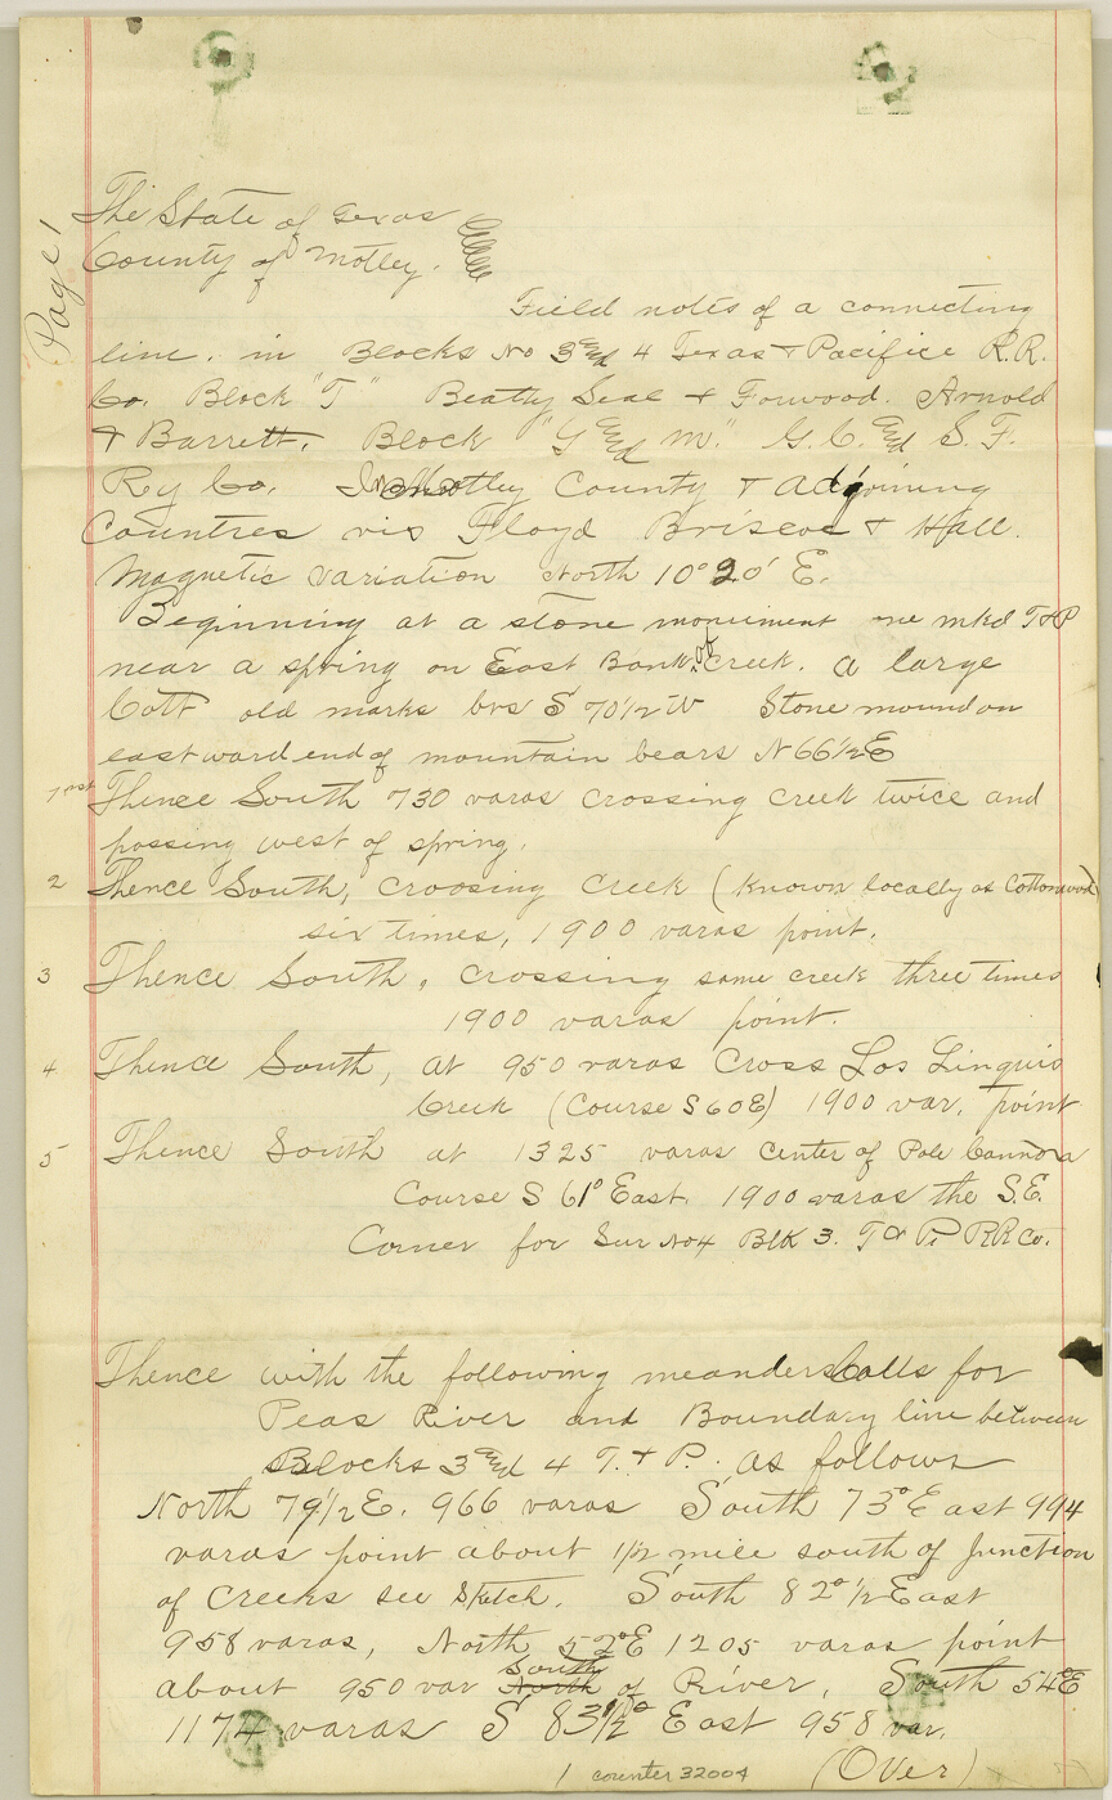 Page 1
The State of Texas
County of Motley.
Field notes of a connecting
line. in Blocks No 3 and 4 Texas + Pacifice R.R.
Co. Block "T" Beatty Seal + Forwood. Arnold
+ Barrett. Block "G and M." G.C. and S.F.
Ry Co. In Motley County + Adjoining
Countres vis Floyd Briscoe + Hall.
Magnetic variation North 10° 20' E.
Beginning at a stone monument mkd T+P
near a spring on East Bank of creek. a large
Cott old marks brs S 70 1/2 W Stone mound on
eastward end of mountain bears N 66 1/2 E
1st Thence South 730 varas crossing creek twice and
passing west of spring.
2 Thence South, croosing creek (known locally as Cottonwood)
six times, 1900 varas point.
3 Thence South, crossing same creek three times
1900 varas point.
4 Thence South, at 950 varas cross Los Linquis
Creek (Course S 60 E) 1900 var. point
5 Thence South at 1325 varas center of Pole Cannora
Course S 61° East. 1900 varas the S.E.
Corner for Sur No 4 Blk 3. T & P. RR Co.
Thence with the following meanders Calls for
Peas River and Boundary line between
Blocks 3 and 4 T. + P. as follows
North 79 1/2 E. 966 varas South 73° East 994
varas point about 1 1/2 mile south of junction
of creeks see sketch. South 82° 1/2 East
958 varas, North 52° E 1205 varas point
South
about 950 var North of River, South 54° E
1174 varas S 83 1/2° East 958 var.
1 counter 32004 (Over)